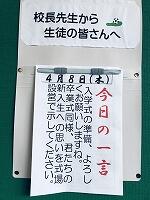 校長先生から
生徒の皆さんへ
4月8日(木)
今日の一言
入学式の準備、よろし
くお願いしますね。
卒業式同様、君たちの
新入生への思いを式場
設営で示してください。